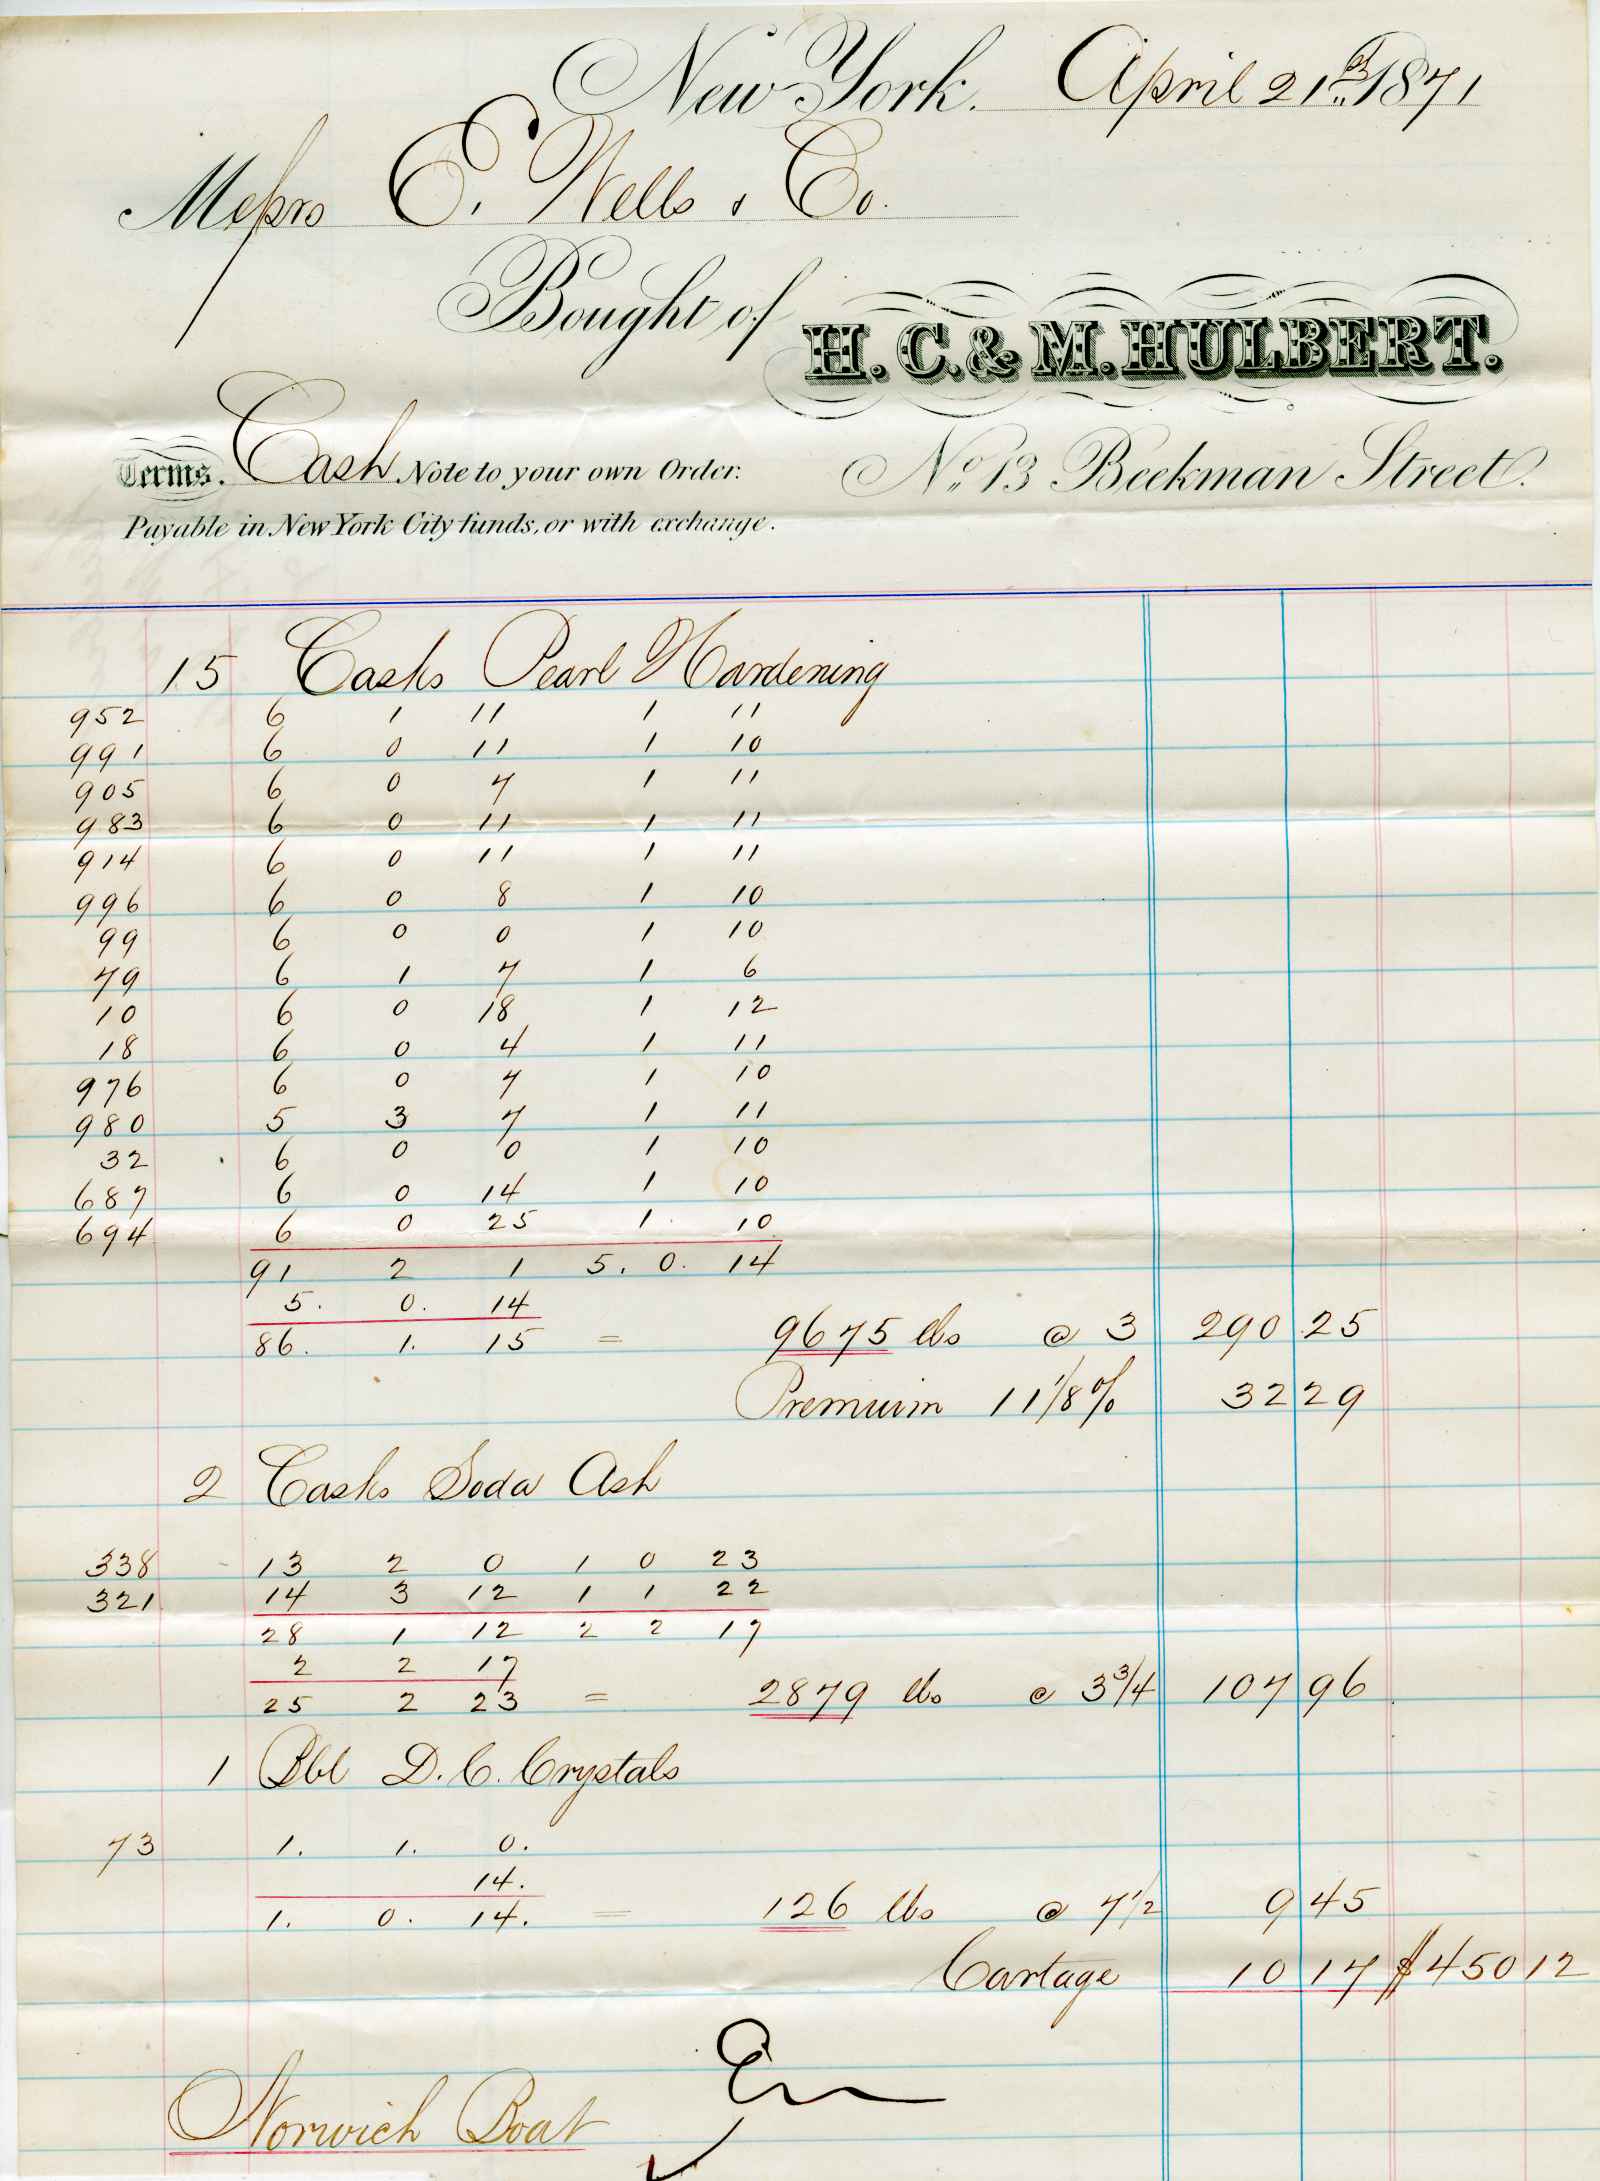 New York. April 21st 1871
Messrs E. Wells & Co.
Bought of H. C. & M. HULBERT.
Terms. Cash Note to your own Order. No. 13 Beekman Street.
Payable in New York City funds, or with exchange.
15 Casks Pearl Hardening
952 6 1 11 1 11
991 6 0 11 1 10
905 6 0 7 1 11
983 6 0 11 1 11
914 6 0 11 1 11
996 6 0 8 1 10
99 6 0 0 1 10
79 6 1 7 1 6
10 6 0 18 1 12
18 6 0 4 1 11
976 6 0 7 1 10
980 5 3 7 1 11
32 6 0 0 1 10
687 6 0 14 1 10
694 6 0 25 1 10
91 2 1 5. 0. 14
5. 0. 14
86. 1. 15 = 9675 lbs @ 3 290 25
Premium 11 1/8 % 32 29
2 Casks Soda Ash
338 13 2 0 1 0 23
321 14 3 12 1 1 22
28 1 12 2 2 17
2 2 17
25 2 23 = 2879 lbs @ 3 3/4 107 96
1 Bbl D. C. Crystals
73 1. 1. 0.
14.
1. 0. 14. = 126 lbs @ 7 1/2 9 45
Cartage 10 17 $450 12
Norwich Boat